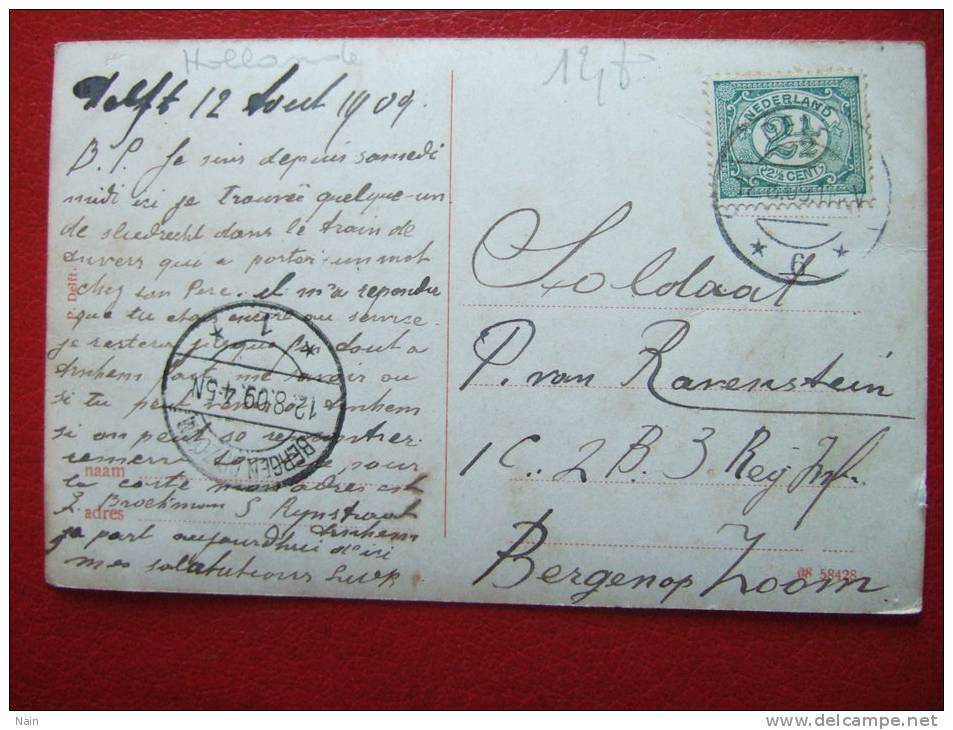 Hollande
Delft 12 Aout 1909.
B. P. Je suis depuis samedi
midi ici je trouvée quelque-un
de sliedrecht dans le train de
Anvers qui a porter un mot
chez son Pere. et m'a repondu
que tu etais encore au service.
je resterai jusque fin Aout a
Arnhem me savoir ou
si tu peut Arnhem
si on peut se rencontrer.
pour
la carte mon adres est
Broekmans Rynstraat
Arnhem
je part aujourdhui d'ici
mes salutations
naam
adres
P. Delft.
NEDERLAND
2½
2½ CENT
6
Soldaat
P. van Ravenstein
1 C. 2 B. 3 Reg Inf.
Bergen op Zoom.
08 58428
1
12.8.09.4-5N
BERGEN OP ZOOM
Nain
www.delcampe.net